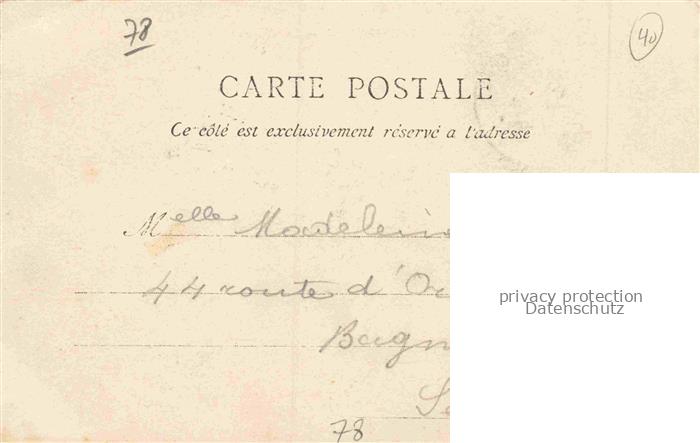 78
40
CARTE POSTALE
Ce côté est exclusivement réservé a l'adresse
Melle Madelein
44 route d'Or
privacy protection
Datenschutz
Bagn
Se
78